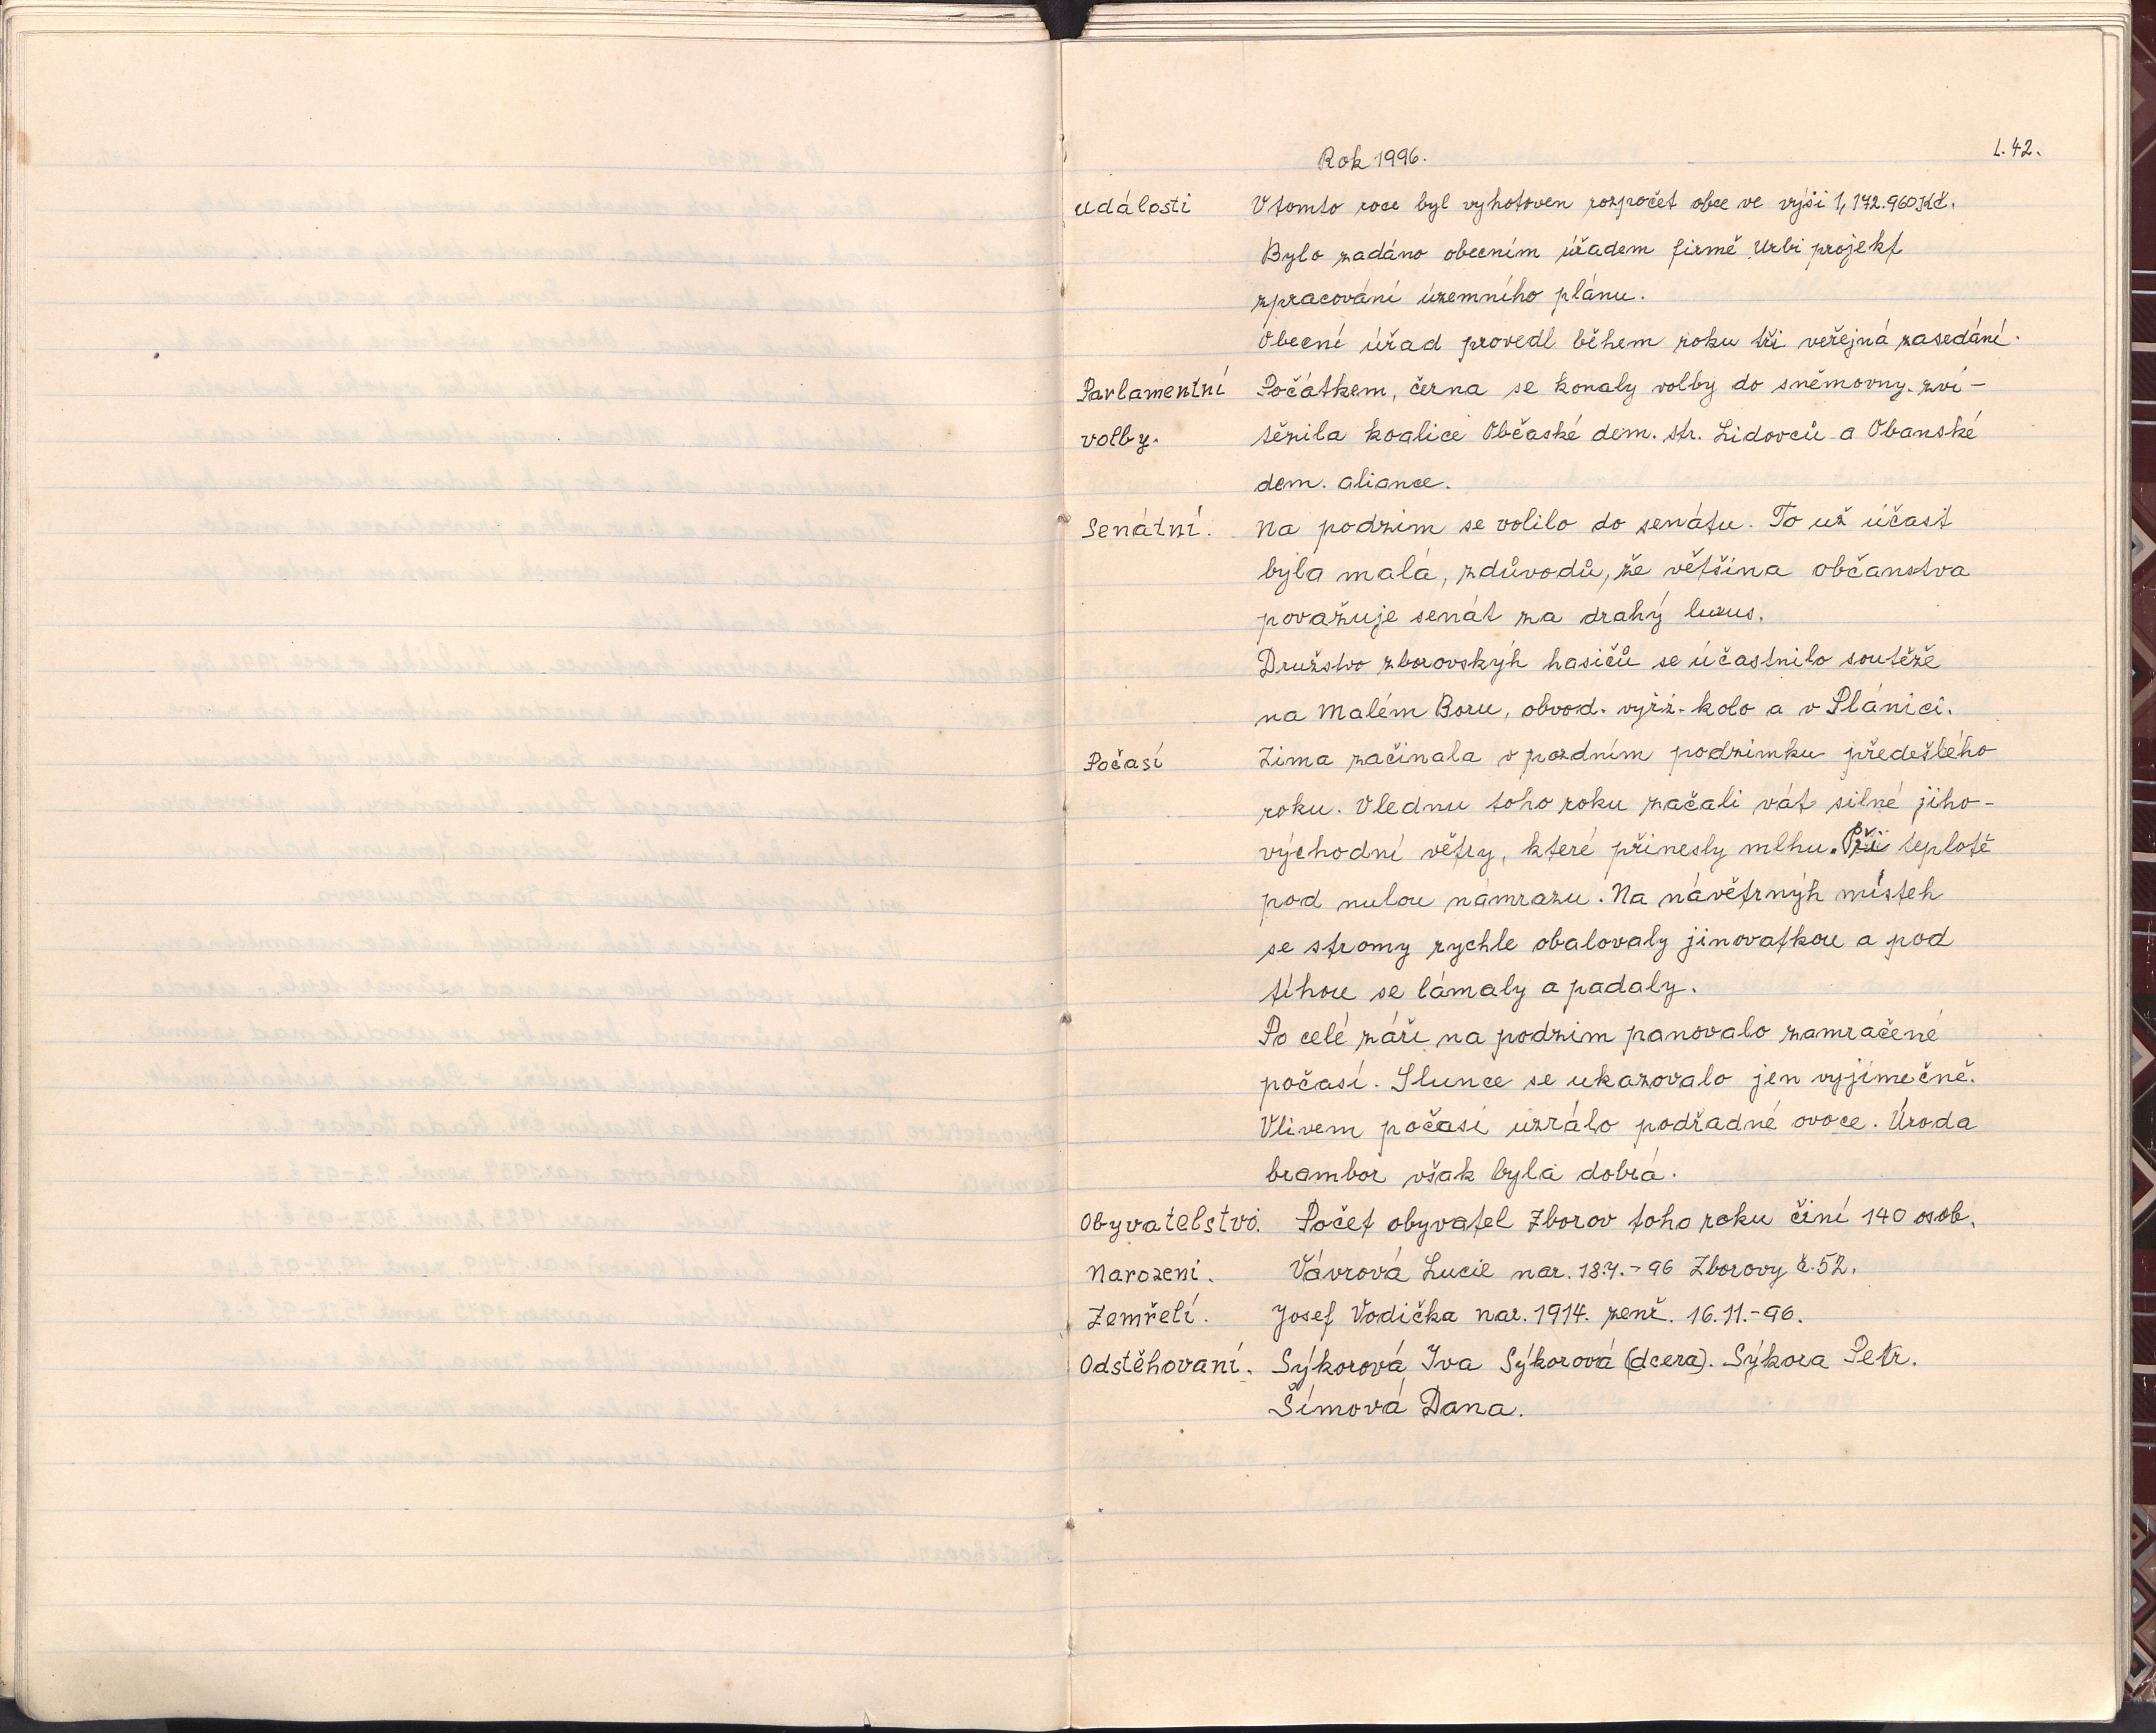 Rok 1996.
L. 42.
události V tomto roce byl vyhotoven rozpočet obce ve výši 1,172.960 Kč.
Bylo zadáno obecním úřadem firmě Urbi projekt
zpracování územního plánu.
Obecní úřad provedl během roku tři veřejná zasedání.
Parlamentní Počátkem, černa se konaly volby do sněmovny. zví-
volby. tězila koalice Občaské dem. str. Lidovců a Obanské
dem. aliance.
Senátní. Na podzim se volilo do senátu. To už účast
byla malá, zdůvodů, že většina občanstva
považuje senát za drahý luxus.
Družstvo zborovskýh hasičů se účastnilo soutěže
na Malém Boru, obvod. vyřz. kolo a v Plánici.
Počasí Zima začínala v pozdním podzimku předešlého
roku. Vlednu toho roku začali vát silné jiho-
východní větry, které přinesly mlhu. Při teplotě
pod nulou námrazu. Na návětrnýh místeh
se stromy rychle obalovaly jinovatkou a pod
tíhou se lámaly a padaly.
Po celé září na podzim panovalo zamračené
počasí. Slunce se ukazovalo jen vyjímečně.
Vlivem počasí uzrálo podřadné ovoce. Úroda
brambor však byla dobrá.
Obyvatelstvo. Počet obyvatel Zborov toho roku činí 140 osob.
Narození. Vávrová Lucie nar. 18.7.-96 Zborovy č.52.
Zemřelí. Josef Vodička nar. 1914. zenř. 16.11.-96.
Odstěhovaní. Sýkorová, Iva Sýkorová (dcera). Sýkora Petr.
Šímová Dana.